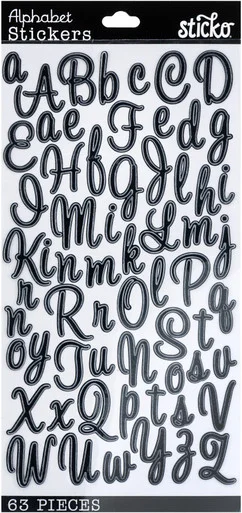 Alphabet
Stickers
sticko
a A B b c C D
E a e F e d g
H f G J l h i
I M i f L m j
K i n m k O l P g
r R r S t
n o y T u N o s u
X x Q p t s V v
W U w Y z Z
63 PIECES